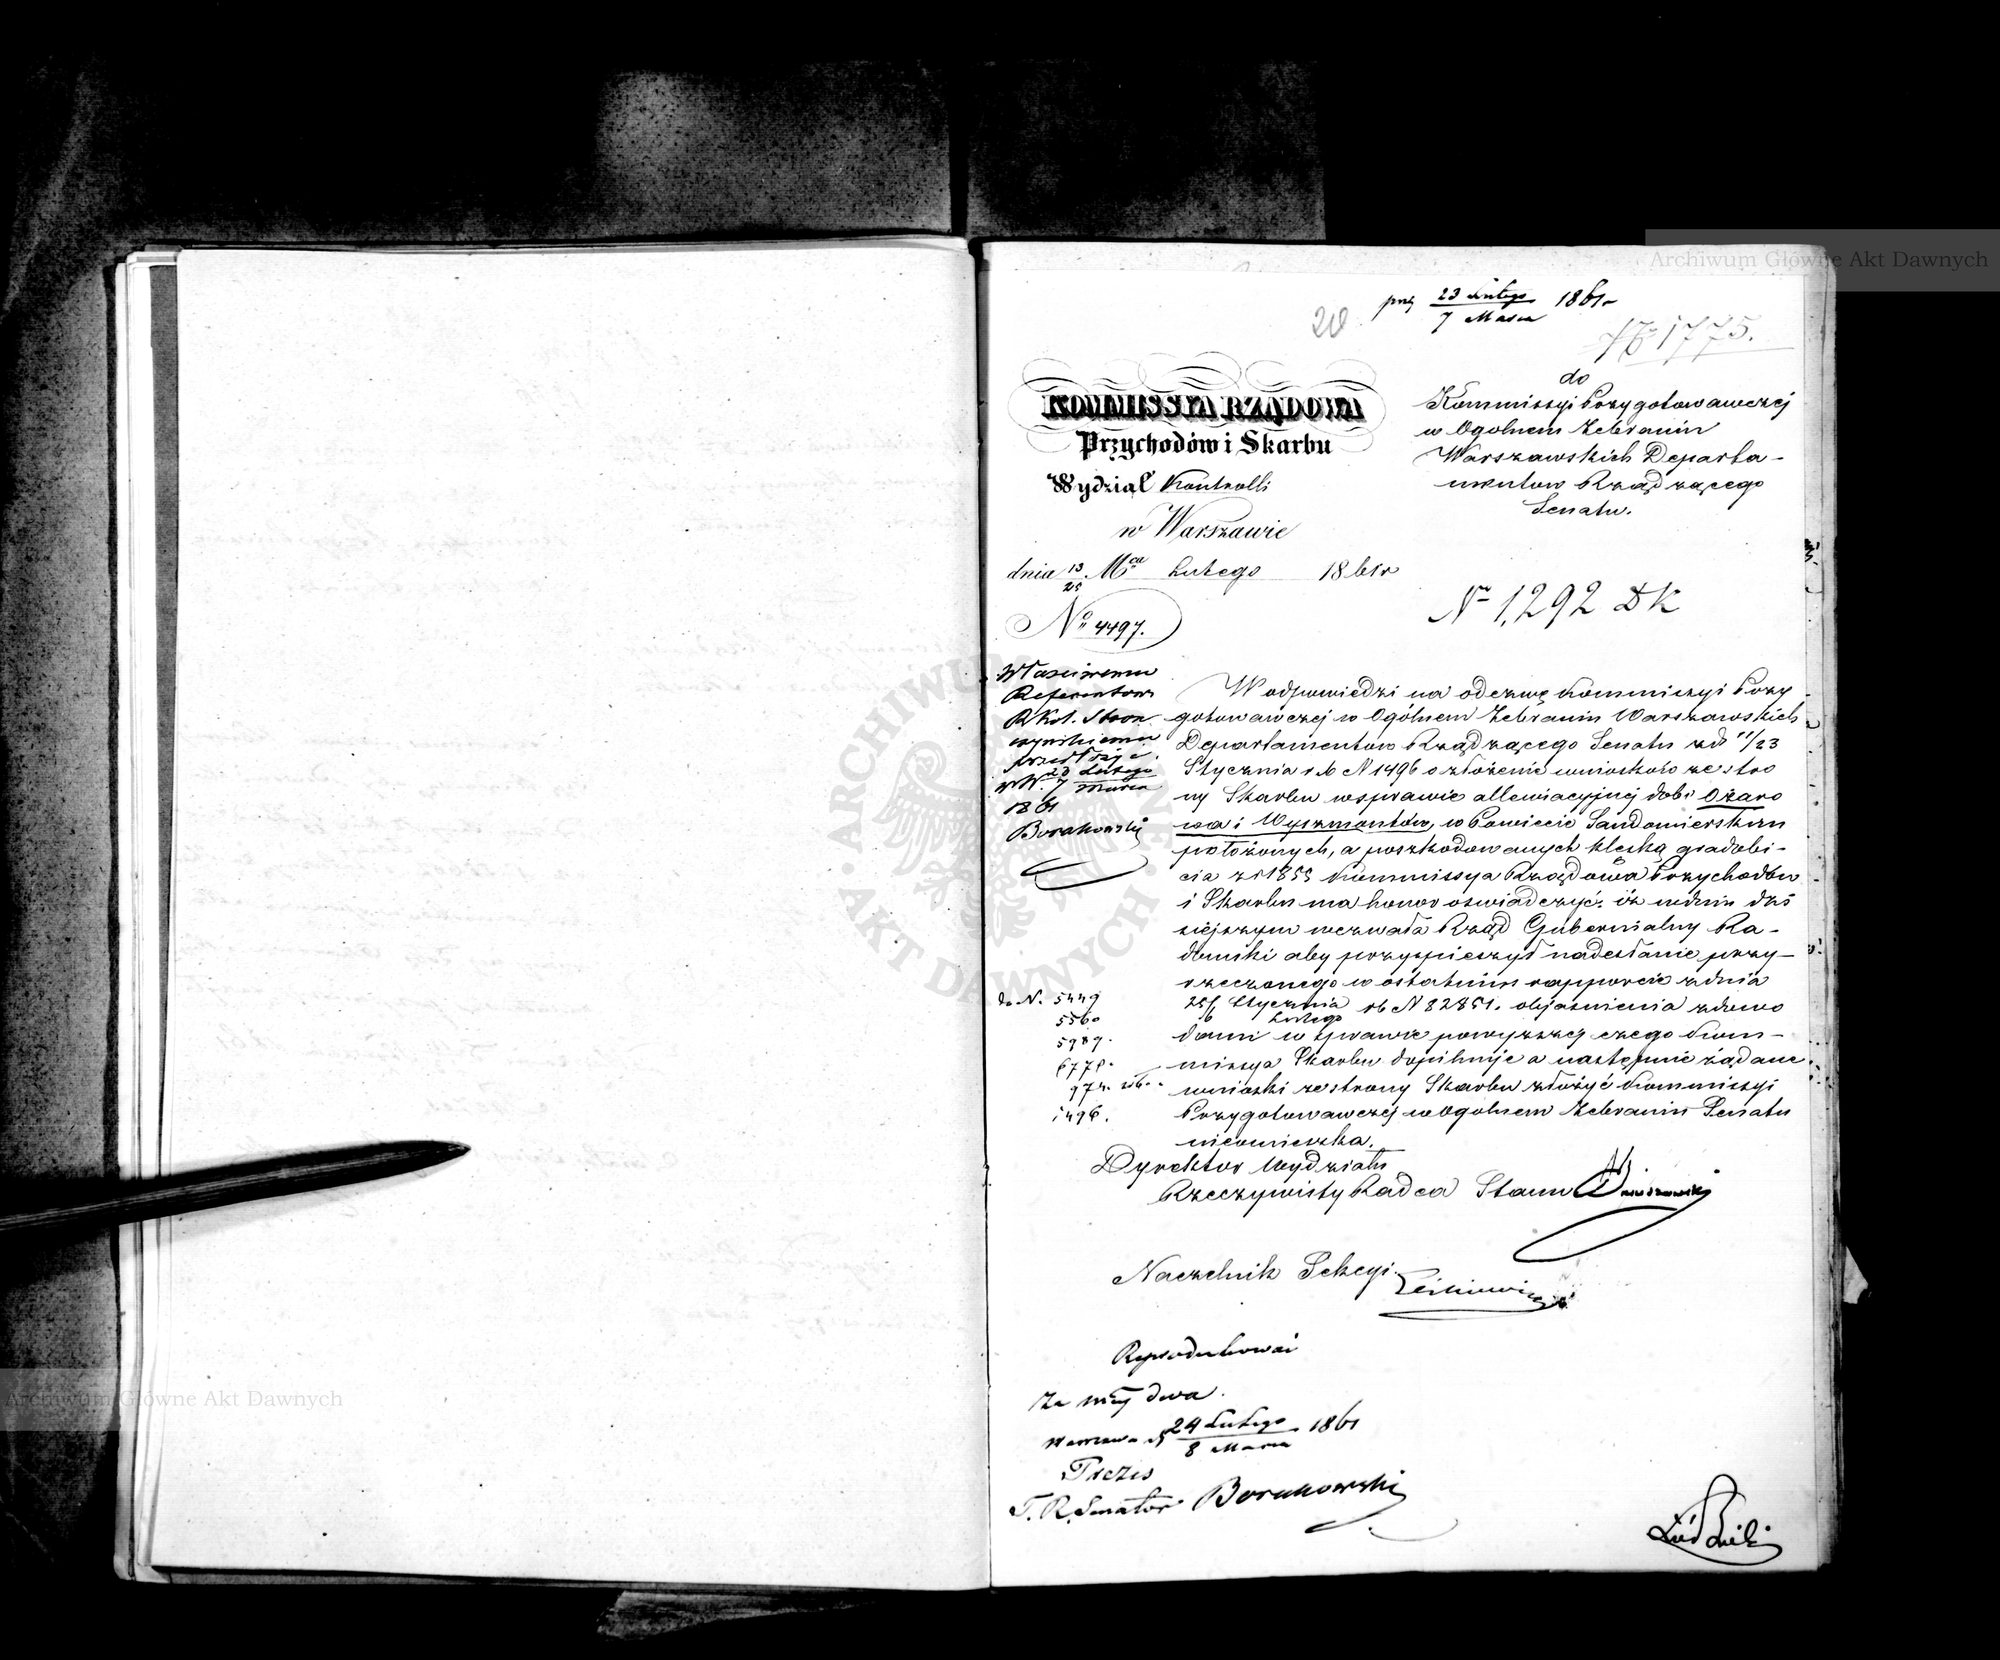 Archiwum Główne Akt Dawnych
prez 23 Lutego 1861 r
7 Marca
20
№ 1775.
KOMMISSYA RZĄDOWA
Przychodów i Skarbu
Wydział Kontrolli
w Warszawie
dnia 13/25 Mca Lutego 1861 r
№ 4497.
do
Kommissyi Przygotowawczej
w Ogolnem Zebraniu
Warszawskich Departa-
mentow Rządzącego
Senatu.
№ 1,292 DK
Właściwemu
Referentowi
przedłożyć
23 Lutego
7 Marca
1861
Borakowski
W odpowiedzi na odezwę Kommissyi Przy
gotowawczej w Ogólnem Zebraniu Warszawskich
Departamentow Rządzącego Senatu z d 11/23
Stycznia r b N 1496 o złożenie wniosków ze stro
ny Skarbu w sprawie allewiacyjnej dóbr Ożaro
wa i Wyszmontów, w Powiecie Sandomierskim
położonych, a poszkodowanych klęską gradobi-
cia z r 1855 Kommissya Rządowa Przychodów
i Skarbu ma honor oświadczyć, iż w dniu dzi
siejszym wezwała Rząd Gubernialny Ra-
domski aby przyspieszył nadesłanie przy-
rzeczonego w ostatnim rapporcie z dnia
25/6 Stycznia/Lutego r b N 82851. objaśnienia z dowo
dami w sprawie powyższej czego Kom-
missya Skarbu dopilnuje a następnie żądane
wnioski ze strony Skarbu złożyć Kommissyi
Przygotowawczej w Ogolnem Zebraniu Senatu
nieomieszka.
do N. 5449
5560
5989.
1496.
Dyrektor Wydziału
Rzeczywisty Radca Stanu
Naczelnik Sekcyi
Reprodukować
Za mcy dwa.
Warszawa d 24 Lutego 1861
8 Marca
Prezes
T. R. Senator Borakowski
A. ARCHIWUM
AKT DAWNYCH
Archiwum Główne Akt Dawnych